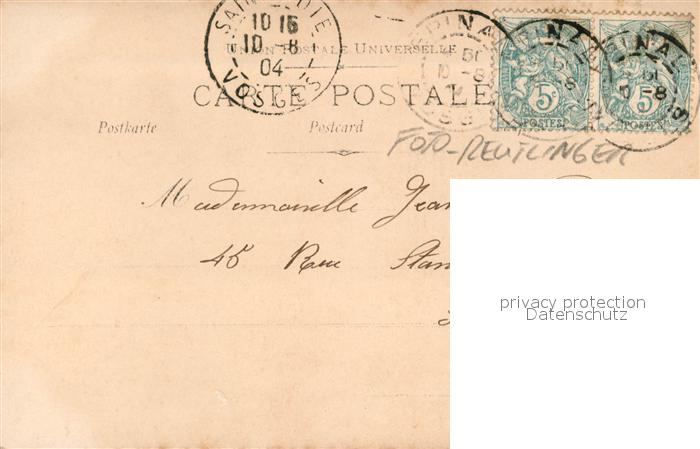 SAINT-DIE
10 15
10 -8
04
VOSGES
UNION POSTALE UNIVERSELLE
CARTE POSTALE
Postkarte Postcard
EPINAL
10 -8
5c
POSTES
EPINAL
10 -8
5c
POSTES
FOTO-REUTLINGER
Mademoiselle Jean
45 Rue Stan
privacy protection
Datenschutz